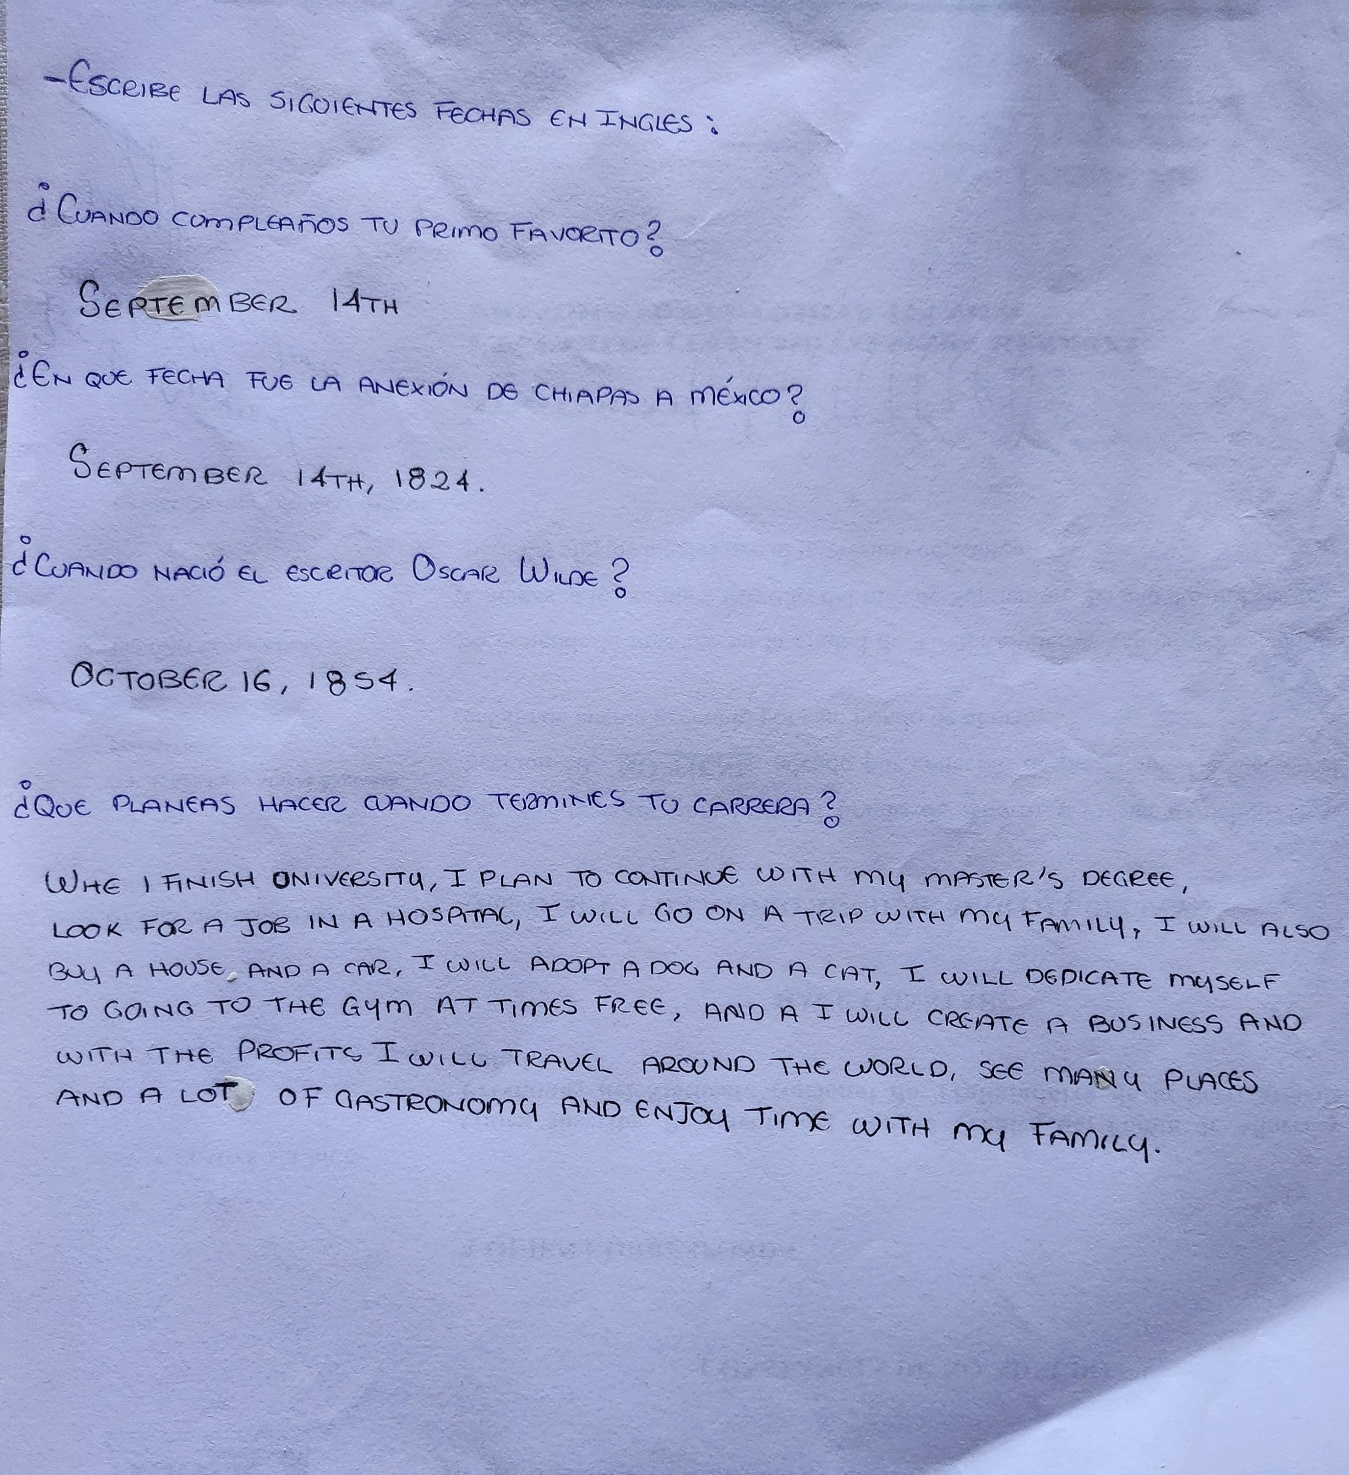 -ESCRIBE LAS SIGUIENTES FECHAS EN INGLES:
¿CUANDO CUMPLEAÑOS TU PRIMO FAVORITO?
SEPTEMBER 14TH
¿EN QUE FECHA FUE LA ANEXIÓN DE CHIAPAS A MÉXICO?
SEPTEMBER 14TH, 1824.
¿CUANDO NACIÓ EL ESCRITOR OSCAR WILDE?
OCTOBER 16, 1854.
¿QUE PLANEAS HACER CUANDO TERMINES TU CARRERA?
WHE I FINISH UNIVERSITY, I PLAN TO CONTINUE WITH MY MASTER'S DEGREE,
LOOK FOR A JOB IN A HOSPITAL, I WILL GO ON A TRIP WITH MY FAMILY, I WILL ALSO
BUY A HOUSE, AND A CAR, I WILL ADOPT A DOG AND A CAT, I WILL DEDICATE MYSELF
TO GOING TO THE GYM AT TIMES FREE, AND A I WILL CREATE A BUSINESS AND
WITH THE PROFITS I WILL TRAVEL AROUND THE WORLD, SEE MANY PLACES
AND A LOT OF GASTRONOMY AND ENJOY TIME WITH MY FAMILY.